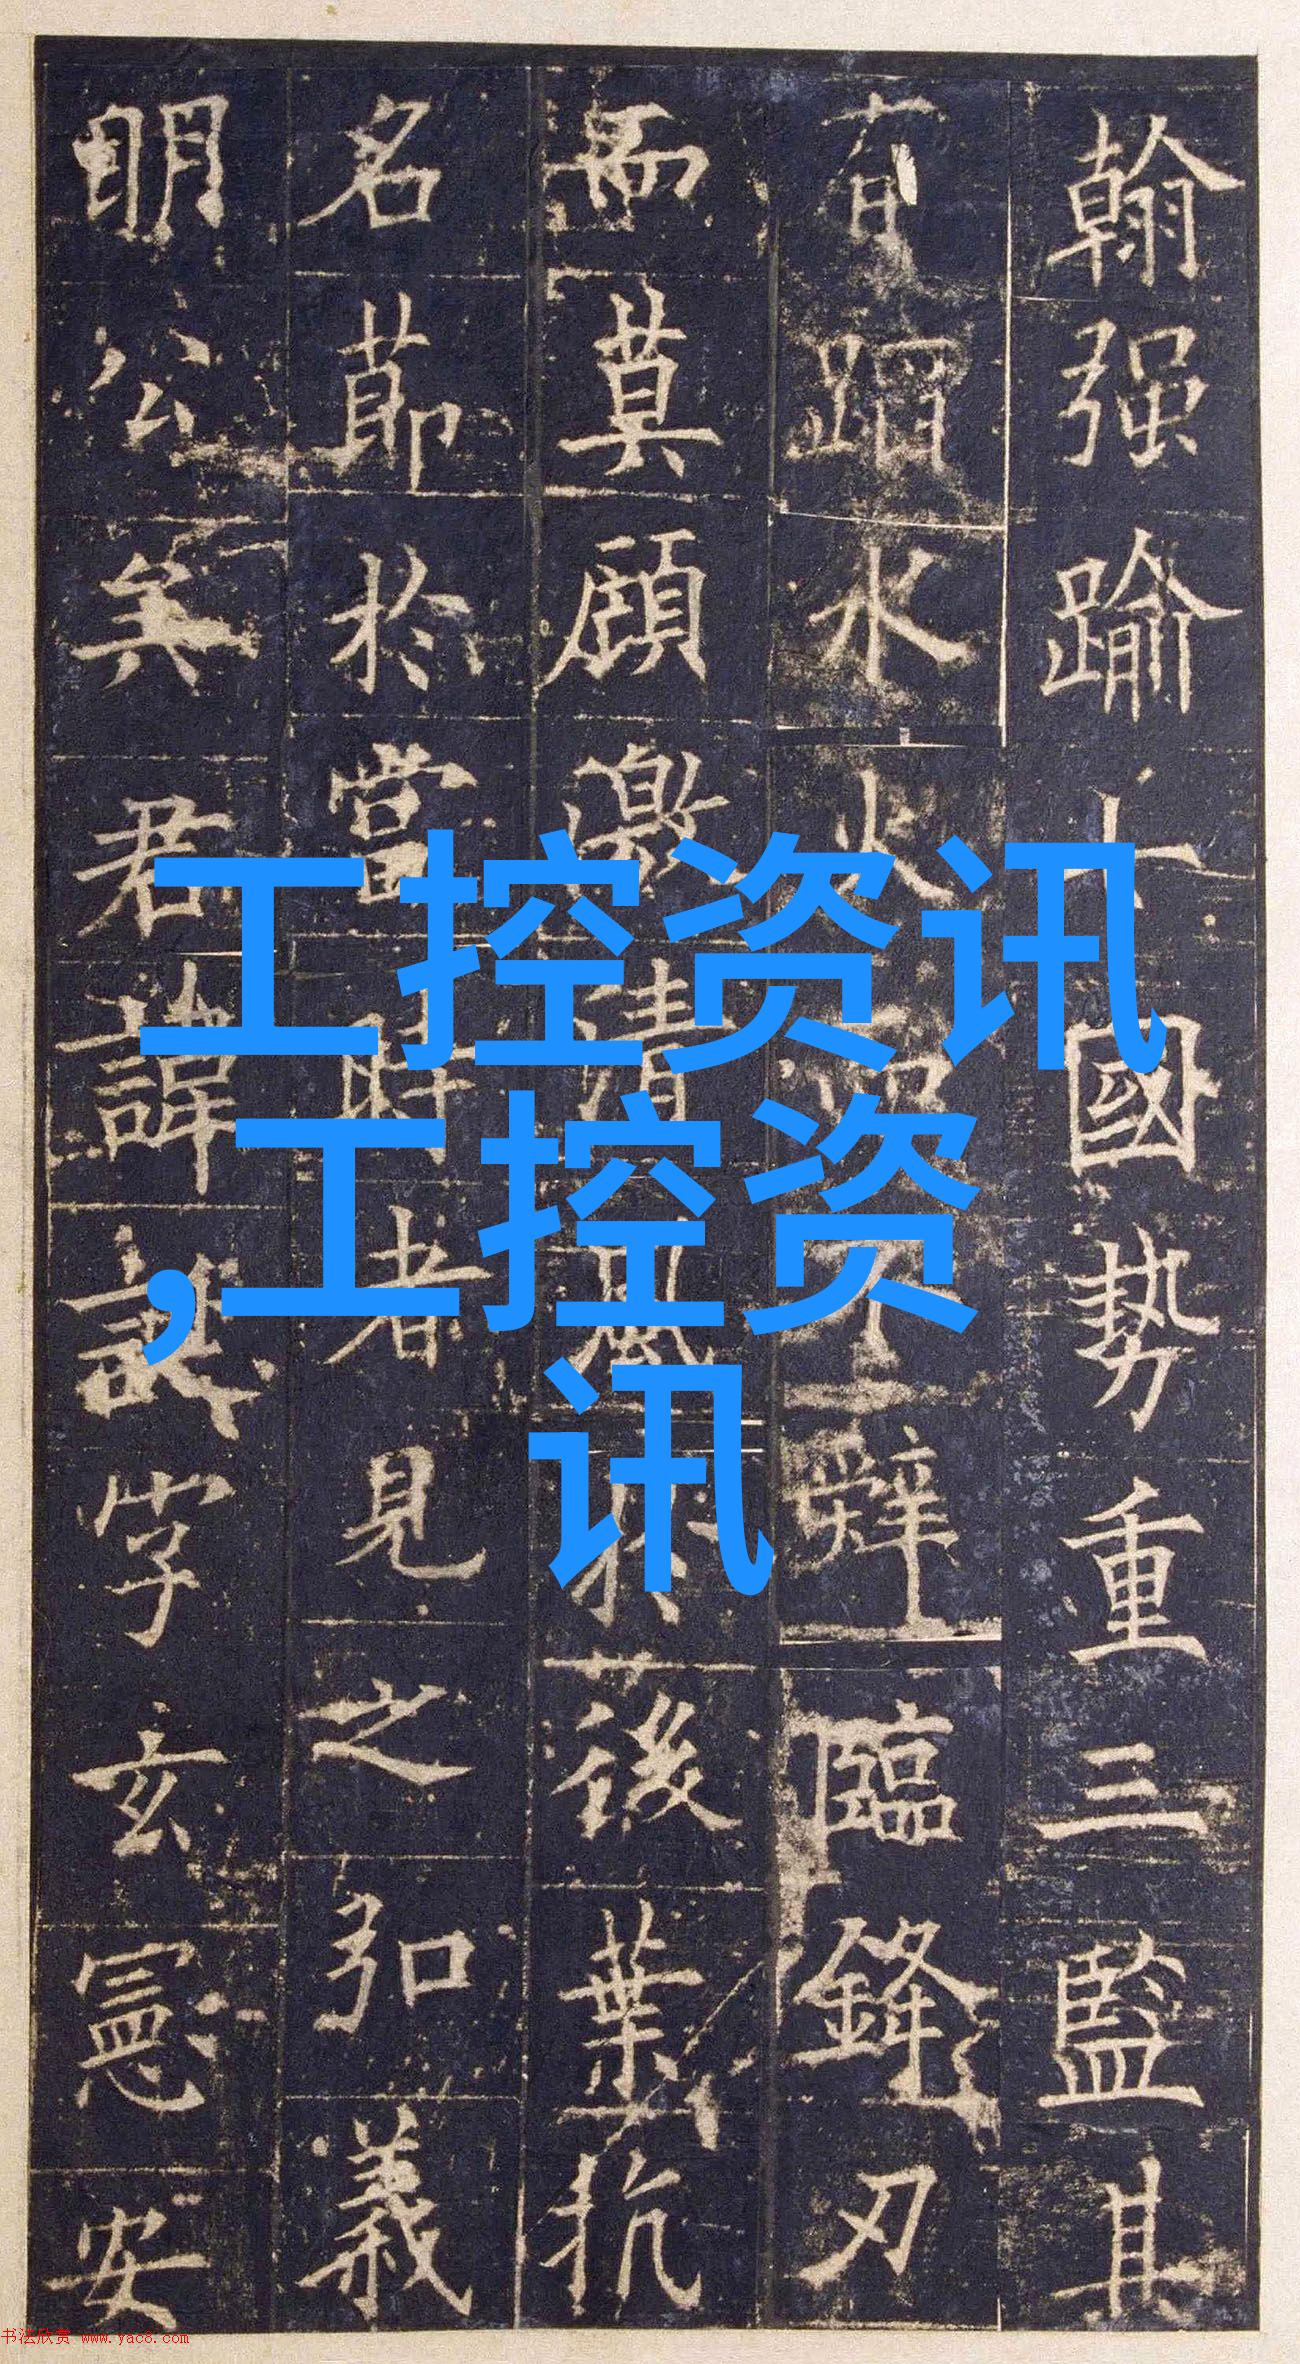 翰强踰十國势重三監其
有蹈水火不辭臨鋒刃
而莫顧激清風於後葉抗
名節於當時者見之弘義
明公矣君諱誕字玄憲安
工控资讯
,工控资
讯
书法欣赏 www.yac8.com